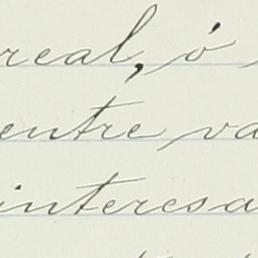 real, ó
entre va
interesa